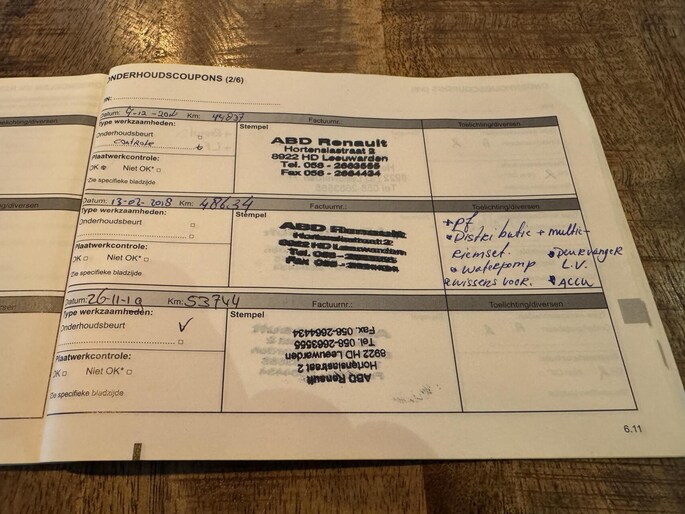 ONDERHOUDSCOUPONS (2/6)
IN:
Datum: Km: 44837 Factuurnr.: Toelichting/diversen
Type werkzaamheden: Stempel
Onderhoudsbeurt
Controle
Plaatwerkcontrole:
OK Niet OK*
Zie specifieke bladzijde
ABD Renault
Hortensiastraat 2
8922 HD Leeuwarden
Tel. 058 - 2663555
Fax 058 - 2664434
Datum: 13-02-2018 Km: 48634 Factuurnr.: Toelichting/diversen
Type werkzaamheden: Stempel
Onderhoudsbeurt
Plaatwerkcontrole:
OK Niet OK*
Zie specifieke bladzijde
ABD Renault
Hortensiastraat 2
8922 HD Leeuwarden
+ pf
Distributie + multi-
riemset.
Waterpomp
Ruitenwissers voor.
Deurvanger
L.V.
Accu
Datum: 26-11-19 Km: 53744 Factuurnr.: Toelichting/diversen
Type werkzaamheden: Stempel
Onderhoudsbeurt ✓
Plaatwerkcontrole:
OK Niet OK*
Zie specifieke bladzijde
ABD Renault
Hortensiastraat 2
8922 HD Leeuwarden
Tel. 058-2663555
Fax. 058-2664434
6.11